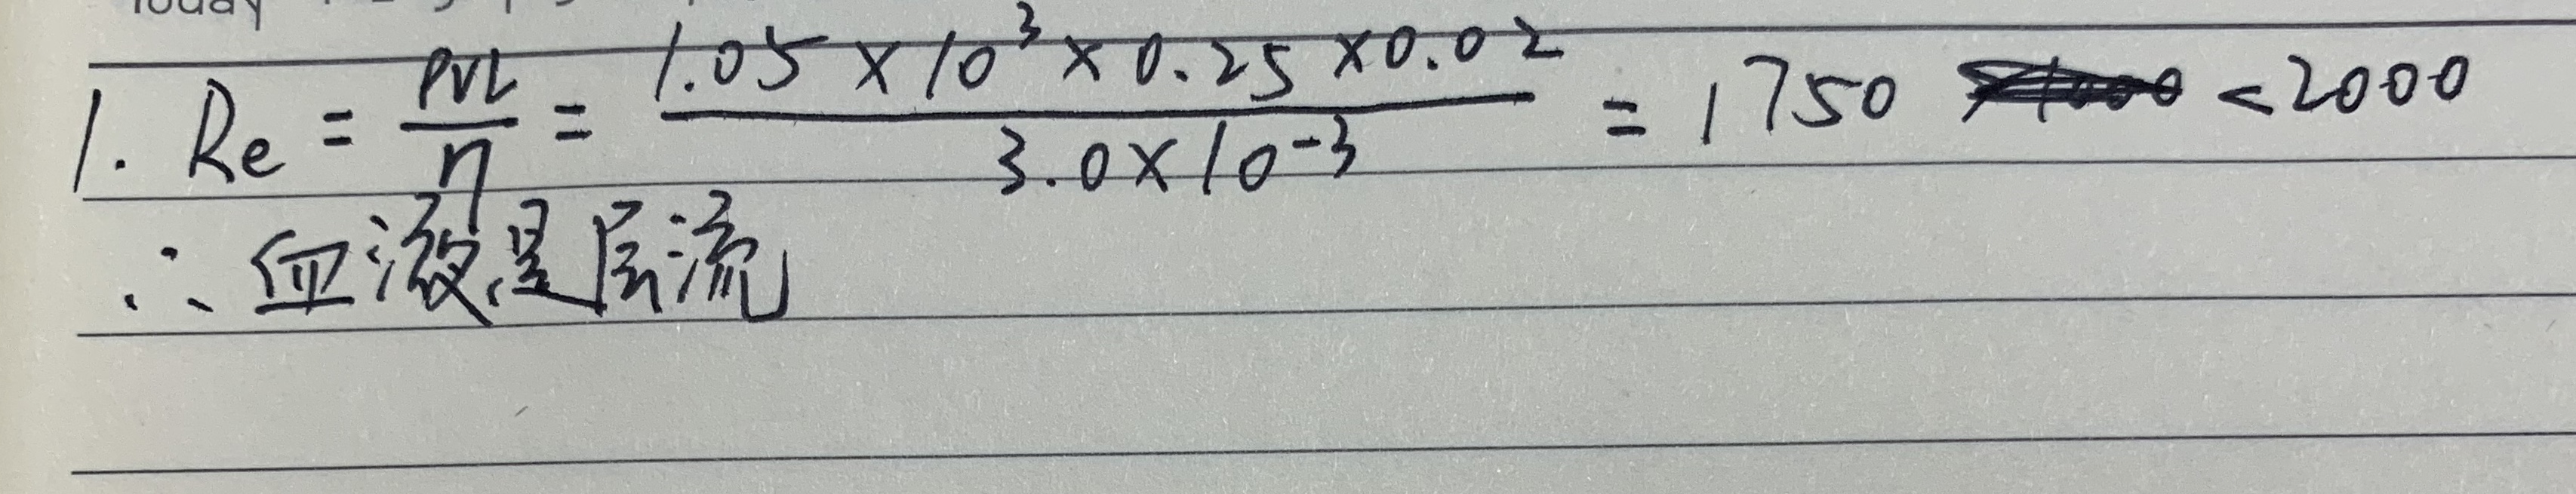 Today
1. Re = ρVL/η = 1.05×10³×0.25×0.02/3.0×10⁻³ = 1750 <2000
∴ 血液是层流